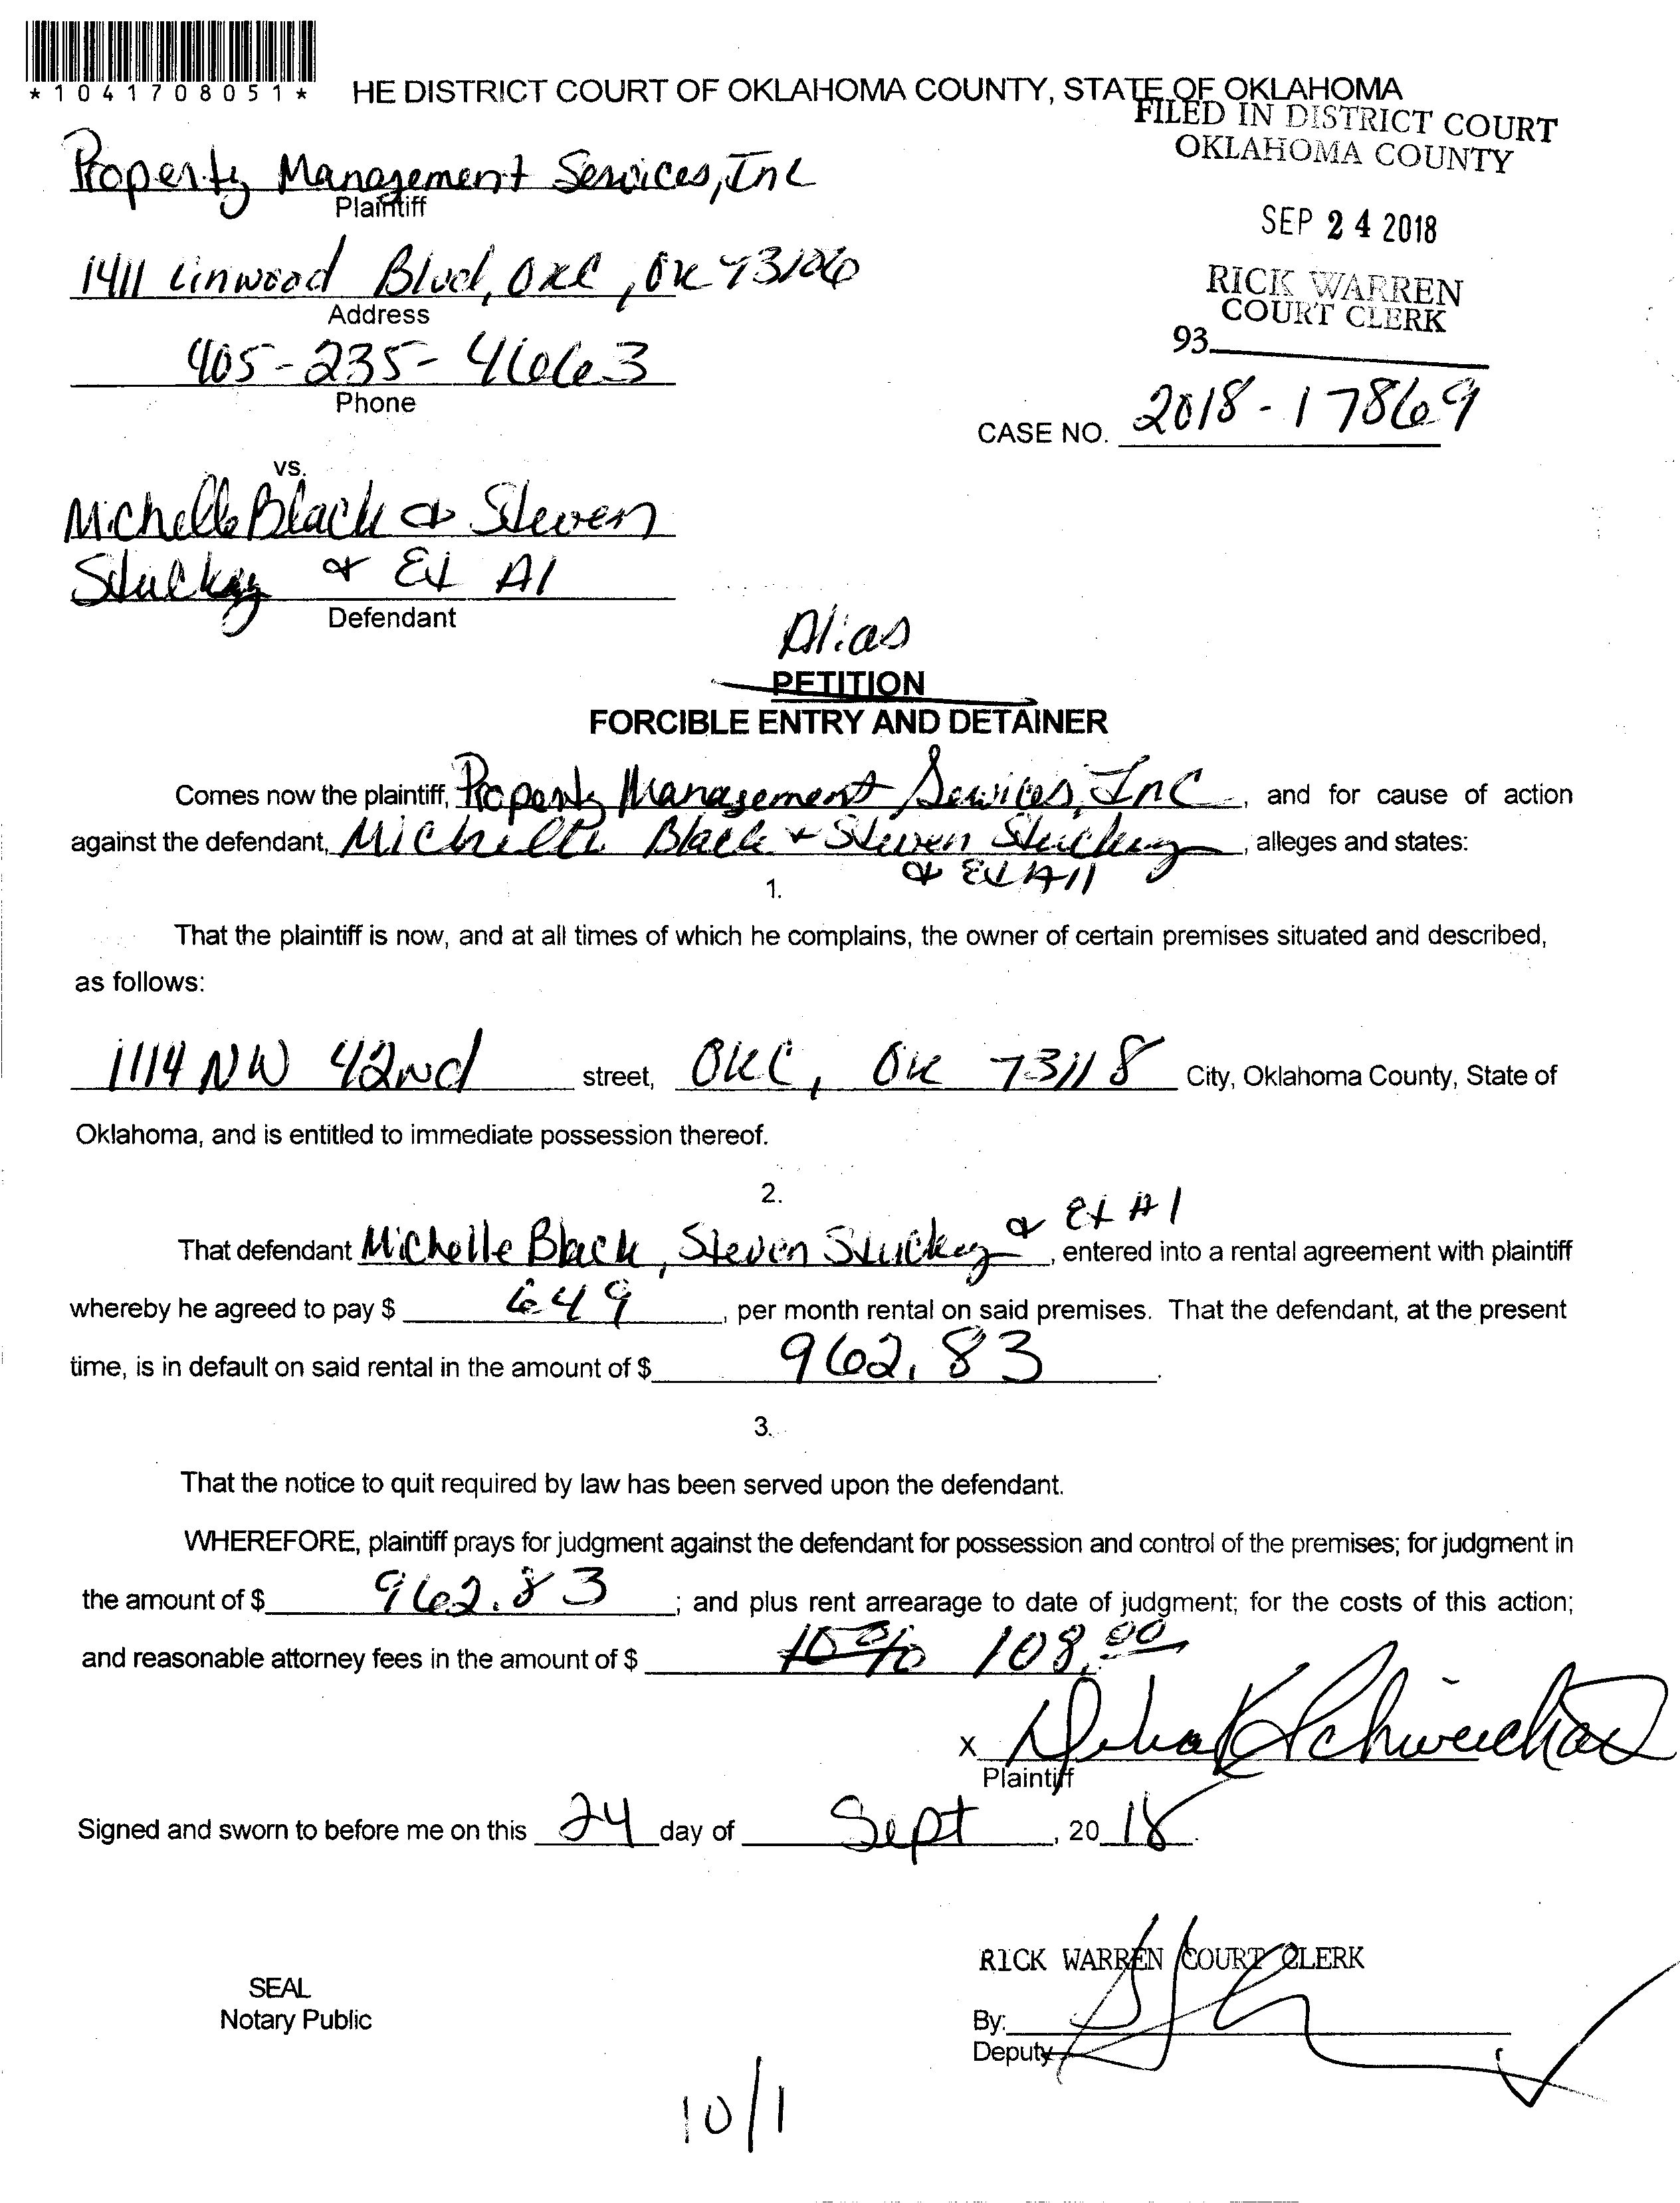 *1041708051*
HE DISTRICT COURT OF OKLAHOMA COUNTY, STATE OF OKLAHOMA
FILED IN DISTRICT COURT
OKLAHOMA COUNTY
Property Management Services, Inc
Plaintiff
SEP 24 2018
1411 Linwood Blvd, OKC, OK 73106
Address
RICK WARREN
COURT CLERK
93
405-235-4663
Phone
CASE NO. 2018-17869
vs.
Michelle Black & Steven
Stuckey & Et Al
Defendant
Alias
PETITION
FORCIBLE ENTRY AND DETAINER
Comes now the plaintiff, Property Management Services, Inc, and for cause of action
against the defendant, Michelle Black & Steven Stuckey, alleges and states:
& Et All
1.
That the plaintiff is now, and at all times of which he complains, the owner of certain premises situated and described,
as follows:
1114 NW 42nd street, OKC, OK 73118 City, Oklahoma County, State of
Oklahoma, and is entitled to immediate possession thereof.
2.
That defendant Michelle Black, Steven Stuckey & Et Al, entered into a rental agreement with plaintiff
whereby he agreed to pay $ 649, per month rental on said premises. That the defendant, at the present
time, is in default on said rental in the amount of $ 962.83.
3.
That the notice to quit required by law has been served upon the defendant.
WHEREFORE, plaintiff prays for judgment against the defendant for possession and control of the premises; for judgment in
the amount of $ 962.83; and plus rent arrearage to date of judgment; for the costs of this action;
and reasonable attorney fees in the amount of $ 10% 108.00
X
Plaintiff
Signed and sworn to before me on this 24 day of Sept, 2018.
RICK WARREN COURT CLERK
SEAL
Notary Public
By:
Deputy
10/1